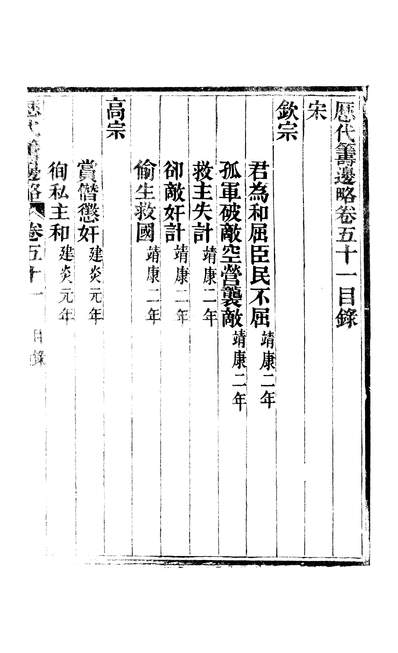 歷代籌邊略卷五十一目錄
宋
欽宗
君為和屈臣民不屈靖康二年
孤軍破敵空營襲敵靖康二年
救主失計靖康二年
卻敵奸計靖康二年
偷生救國靖康二年
高宗
賞僭懲奸建炎元年
徇私主和建炎元年
歷代籌邊略 卷五十一 目錄